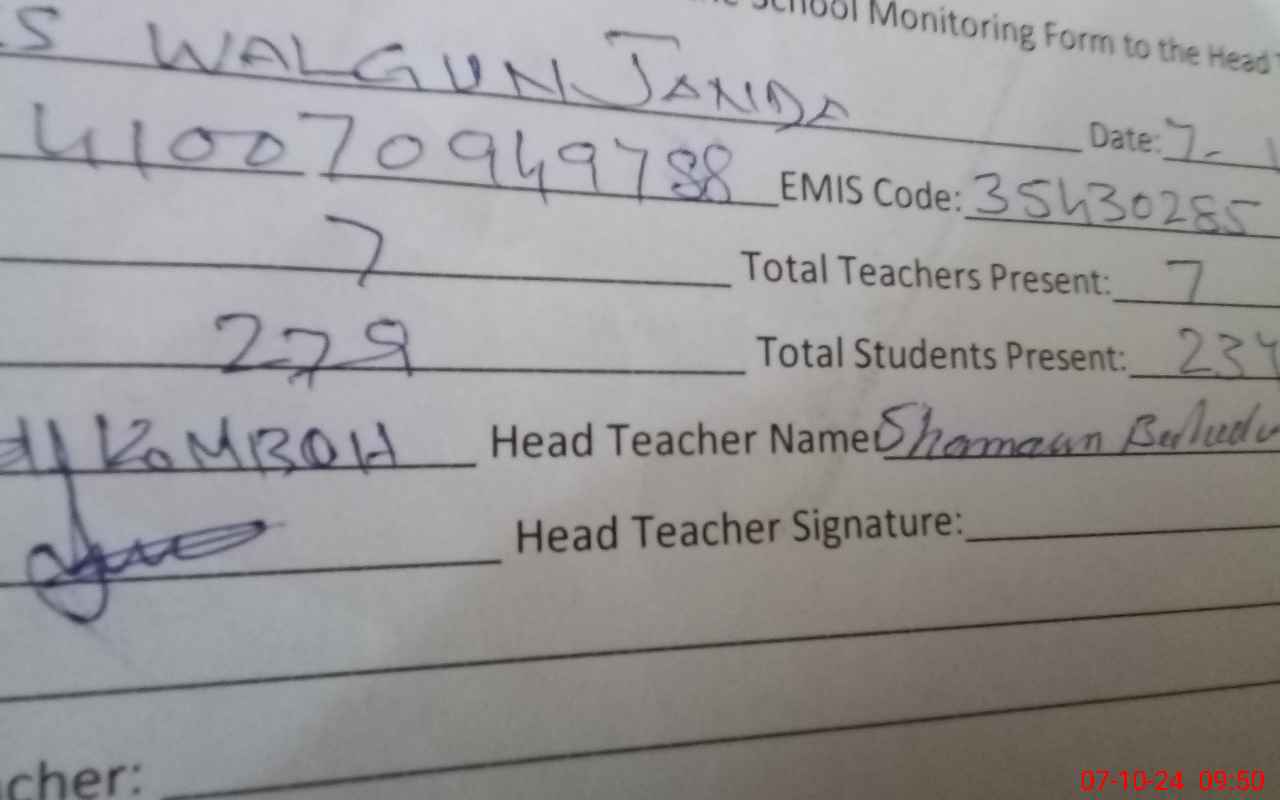 School Monitoring Form to the Head
S WALGUN JANDA Date: 7-
4100709497 88 EMIS Code: 35430285
7 Total Teachers Present: 7
279 Total Students Present: 234
KOMBOH Head Teacher Name Shamaun
Head Teacher Signature:
cher:
07-10-24 09:50